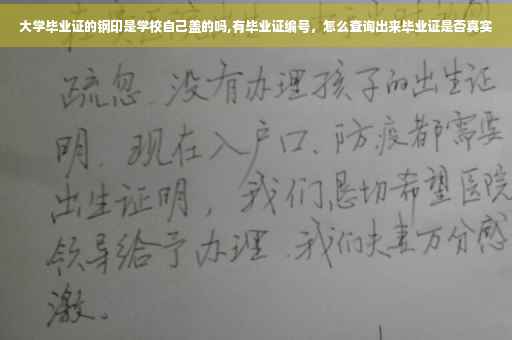 大学毕业证的钢印是学校自己盖的吗,有毕业证编号，怎么查询出来毕业证是否真实
疏忽、没有办理孩子的出生证
明、现在入户口、防疫都需要
出生证明，我们恳切希望医院
领导给予办理、我们夫妻万分感
激。